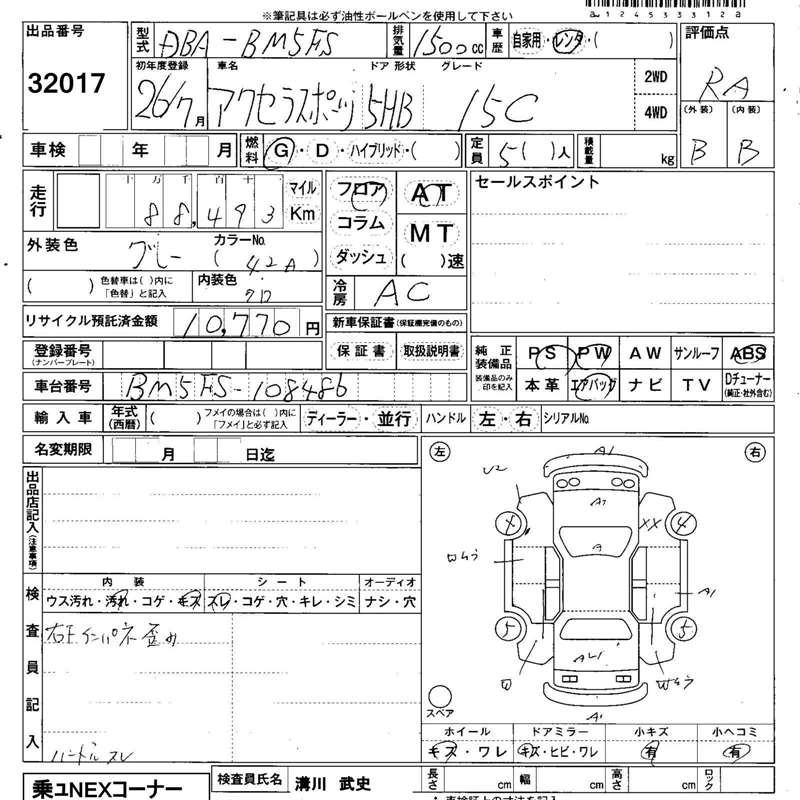 ※筆記具は必ず油性ボールペンを使用して下さい
aw1245333312a
出品番号 32017
型式 DBA-BM5FS 排気量 1500cc 車歴 自家用・レンタ・( )
評価点 RA
初年度登録 26/7月 車名 アクセラスポーツ ドア 形状 5HB グレード 15C 2WD 4WD
(外装) B (内装) B
車検 年 月 燃料 G・D・ハイブリッド・( ) 定員 5( )人 積載量 kg
走行 十 万 千 百 十 88,493 マイル Km
フロア コラム ダッシュ
AT MT ( )速
セールスポイント
外装色 グレー カラーNo. (42A)
( ) 色替車は( )内に「色替」と記入 内装色 クロ
冷房 AC
リサイクル預託済金額 10,770円
新車保証書(保証欄完備のもの)
保証書 取扱説明書
登録番号 (ナンバープレート)
純正装備品 装備品のみ印を記入
PS PW AW サンルーフ ABS
本革 エアバッグ ナビ TV Dチューナー (純正・社外含む)
車台番号 BM5FS-108486
輸入車 年式(西暦) ( ) フメイの場合は( )内に「フメイ」と必ず記入 ディーラー・並行 ハンドル 左・右 シリアルNo.
名変期限 月 日迄
左 右
出品店記入(注意事項)
検査員記入
内装 シート オーディオ
ウス汚れ・汚れ・コゲ・キズ スレ・コゲ・穴・キレ・シミ ナシ・穴
右エインパネ歪み
ハンドルスレ
A1
U2
A1
X
XX
4
A
A1
5
5
A1
スペア
ホイール ドアミラー 小キズ 小ヘコミ
キズ・ワレ キズ・ヒビ・ワレ 有 有
乗ュNEXコーナー
検査員氏名 溝川 武史
長さ cm 幅 cm 高さ cm ロック